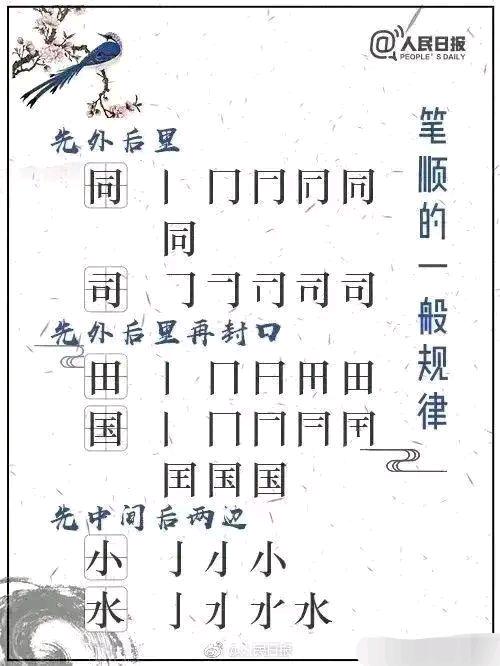 @人民日报
PEOPLE'S DAILY
笔顺的一般规律
先外后里
同 丨 冂 冂 同 同
同
司 𠃌 司 司
先外后里再封口
田 丨 冂 日 田
国 丨 冂
国 国
先中间后两边
小 亅 小
水 亅 水
@人民日报